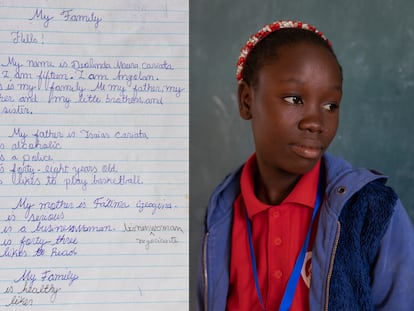 My Family
Hello!
My name is Deolinda Maura Cariata
I am fifteen. I am Angolan.
is my family. Me my father, my
her and my little brothers and
sister.
My father is Isaias Cariata
is alcoholic
is a police
is forty-eight years old
likes to play basketball
My mother is Fatima
is serious
is a businesswoman.
is forty three
likes to read
My Family
is healthy
likes